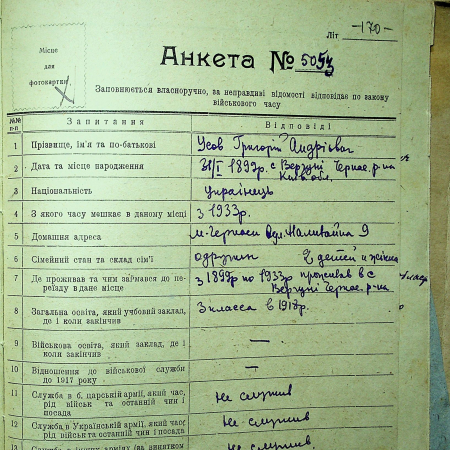 Літ. —170—
Місце
для
фотокартки
Анкета № 5053
Заповнюється власноручно, за неправдиві відомості відповідає по закону
військового часу
№№
п-п
Запитання
Відповіді
1 Прізвище, ім'я та по-батькові Усов Григорій Андрієвач
2 Дата та місце народження 1899р. с Вергуні Черкас. р-на
3 Національність українець
4 З якого часу мешкає в даному місці з 1933р.
5 Домашня адреса м-Черкаси вул. Наливайка 9
6 Сімейний стан та склад сім'ї детей и
7 Де проживав та чим займався до пе- з 1899р по 1933р проживав в с
реїзду в дане місце Вергуні Черкас. р-на
8 Загальна освіта, який учбовий заклад, 3 класса в 1918р.
де і коли закінчив
9 Військова освіта, який заклад, де і —
коли закінчив
10 Відношення до військової служби —
до 1917 року
11 Служба в б. царській армії, який час, не служив
рід військ та останній чин і
посада
12 Служба в Українській армії, який час, не служив
рід військ та останній чин і посада
13 не служив